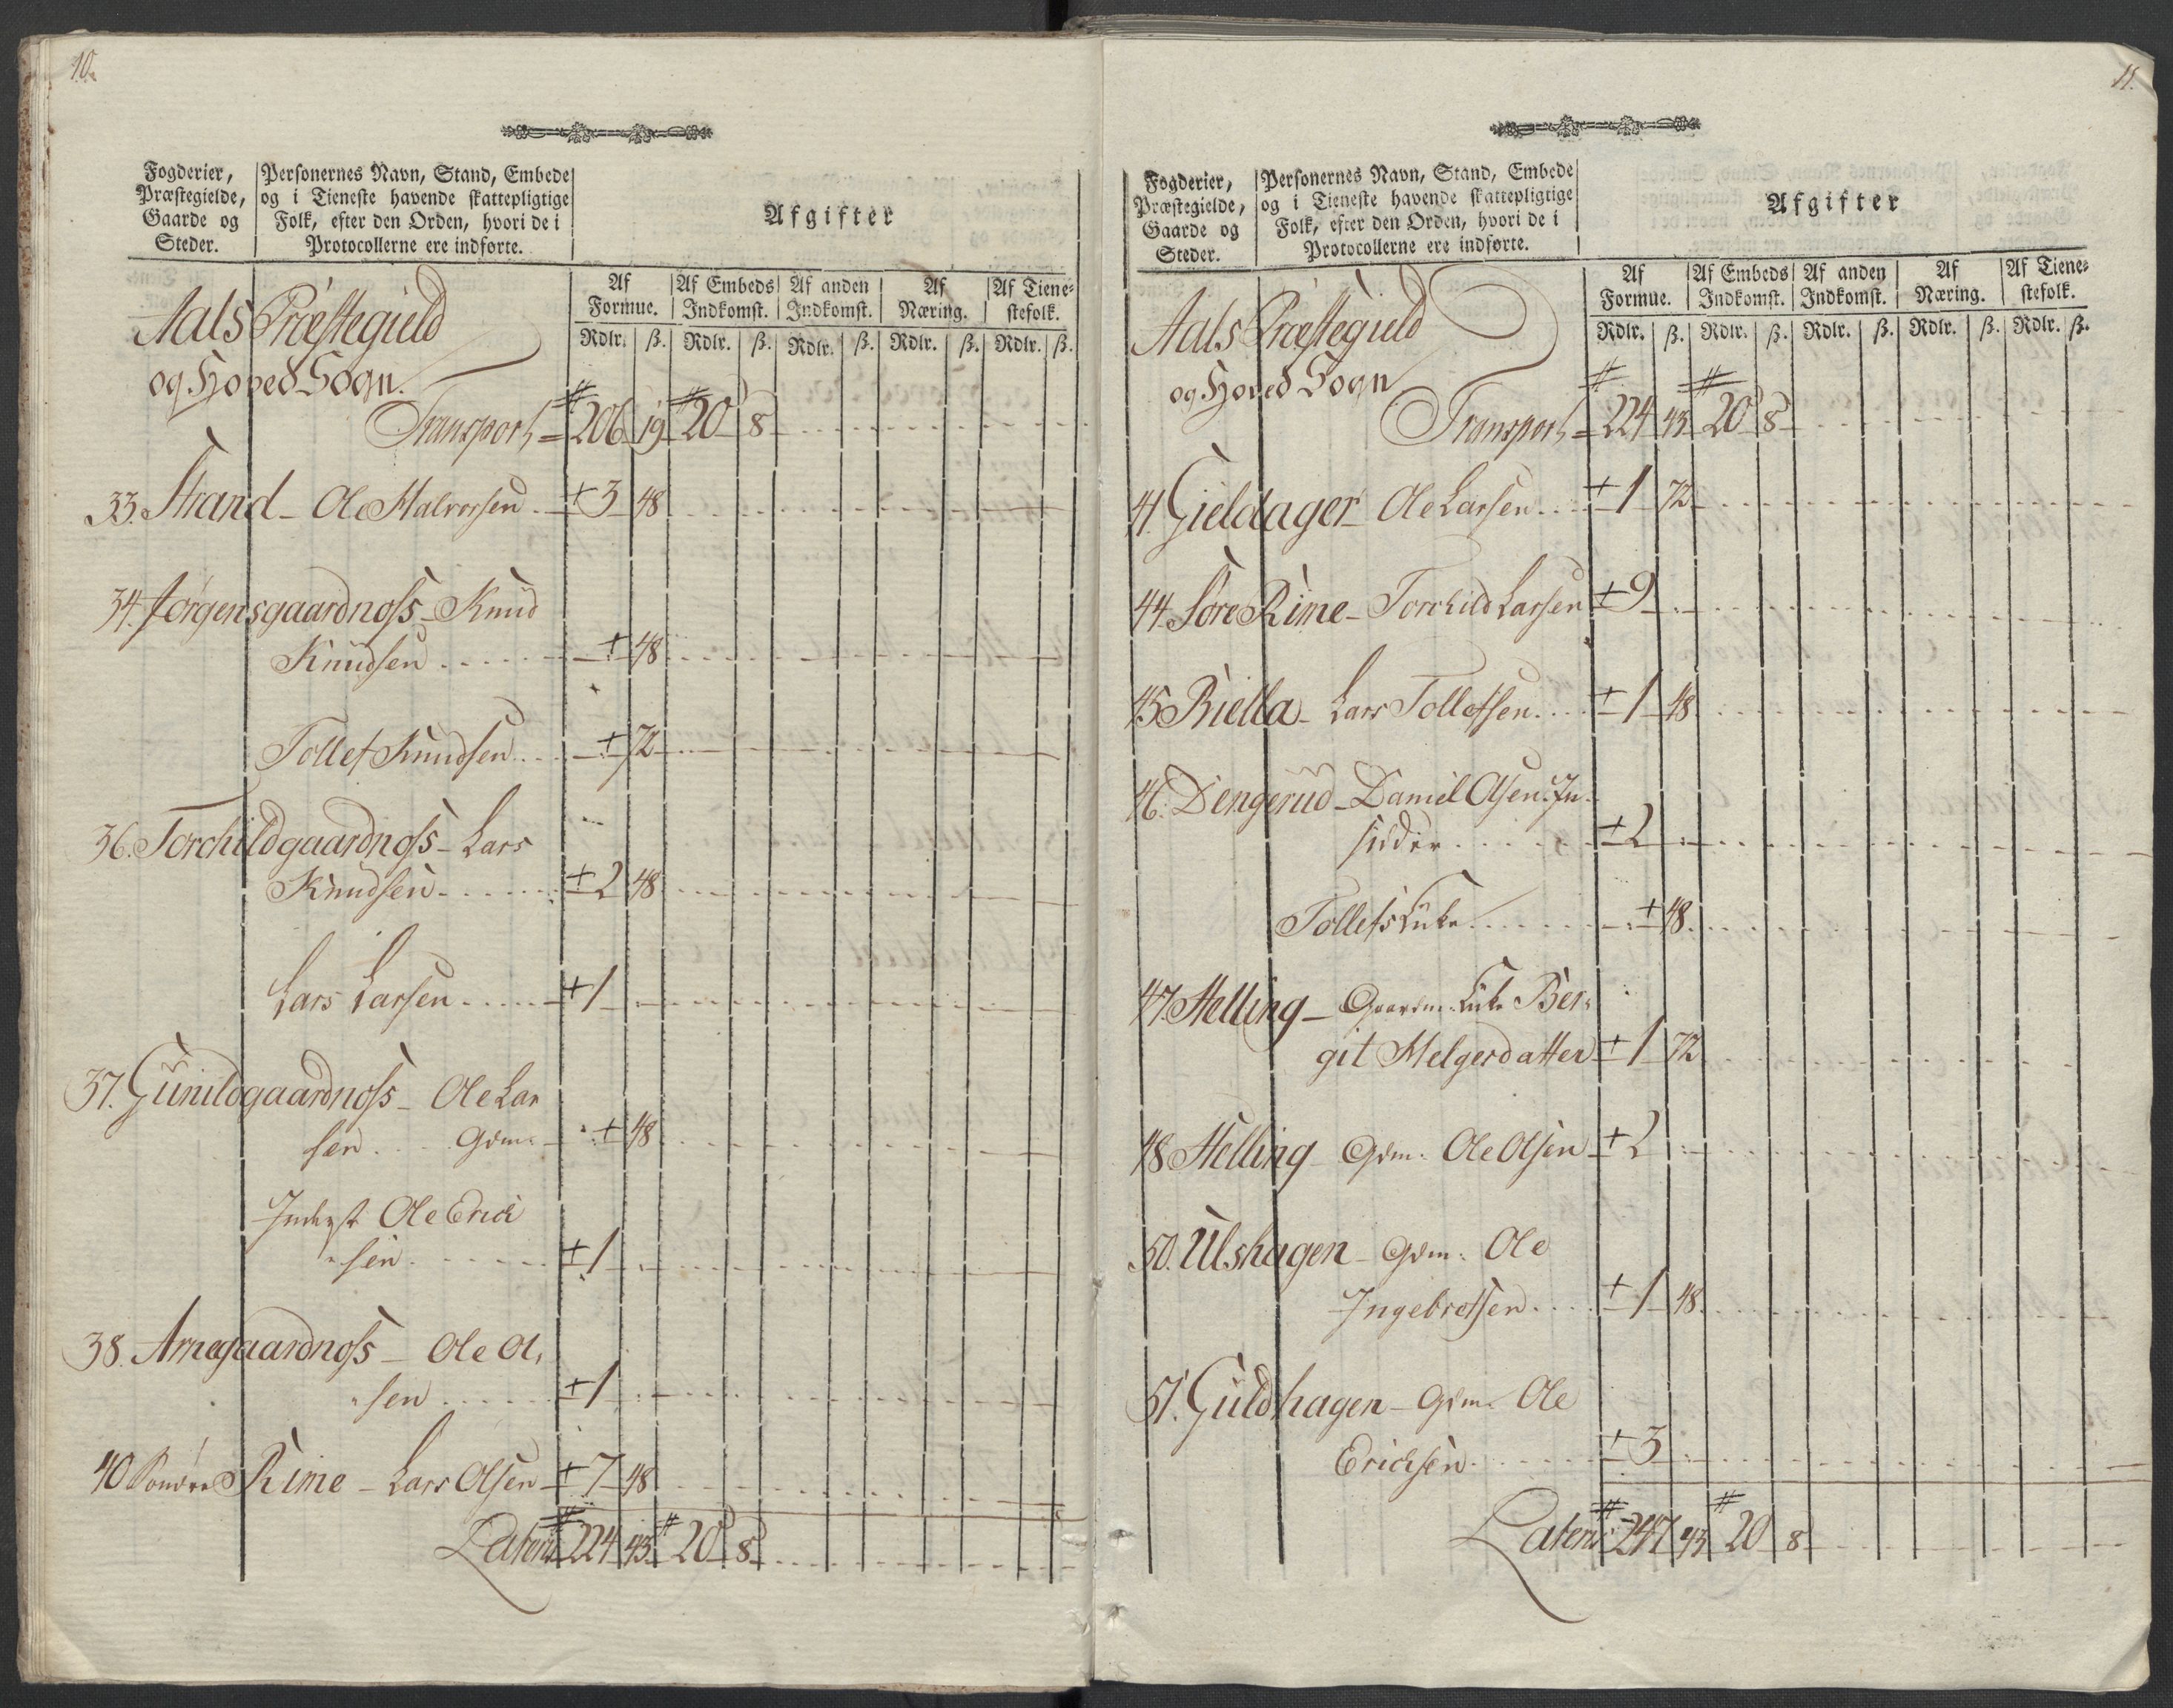 10.
Fogderier, Præstegielde, Gaarde og Steder.
Personernes Navn, Stand, Embede og i Tieneste havende skattepligtige Folk, efter den Orden, hvori de i Protocollerne ere indførte.
Afgifter
Af Formue. Af Embeds Indkomst. Af anden Indkomst. Af Næring. Af Tienestefolk.
Rdlr. ß. Rdlr. ß. Rdlr. ß. Rdlr. ß. Rdlr. ß.
Aals Præstegield
og Hoved-Sogn.
Transport = 206 19 20 8
33. Strand - Ole Halvorsen 3 48
34. Jørgensgaardnoss - Knud
Knudsen 48
Tollef Knudsen 72
36. Torchildgaardnoss - Lars
Knudsen 2 48
Lars Larsen 1
37. Gunildgaardnoss - Ole Lar
sen Gdm: 48
Inderst Ole Erich
sen 1
38. Arnegaardnoss - Ole Ol,
sen 1
40 Søndre Rime - Lars Olsen 7 48
Lateris 224 43 20 8
11.
Fogderier, Præstegielde, Gaarde og Steder.
Personernes Navn, Stand, Embede og i Tieneste havende skattepligtige Folk, efter den Orden, hvori de i Protocollerne ere indførte.
Afgifter
Af Formue. Af Embeds Indkomst. Af anden Indkomst. Af Næring. Af Tienestefolk.
Rdlr. ß. Rdlr. ß. Rdlr. ß. Rdlr. ß. Rdlr. ß.
Aals Præstegield
og Hoved Sogn
Transport = 224 43 20 8
41. Gieldager - Ole Larsen 1 72
44. Søre Rime - Torchild Larsen 9
45 Biella - Lars Tollefsen 1 48
46. Dengerud - Daniel Olsen. In-
sidder 2
Tollefs Enke 48
47. Helling - Gaardm: Enke Ber,
git Helgerdatter 1 72
48 Helling Gdm: Ole Olsen 2
50. Ulshagen - Gdm: Ole
Ingebretsen 1 48
51. Guldhagen - Gdm. Ole
Erichsen 3
Lateris 247 43 20 8